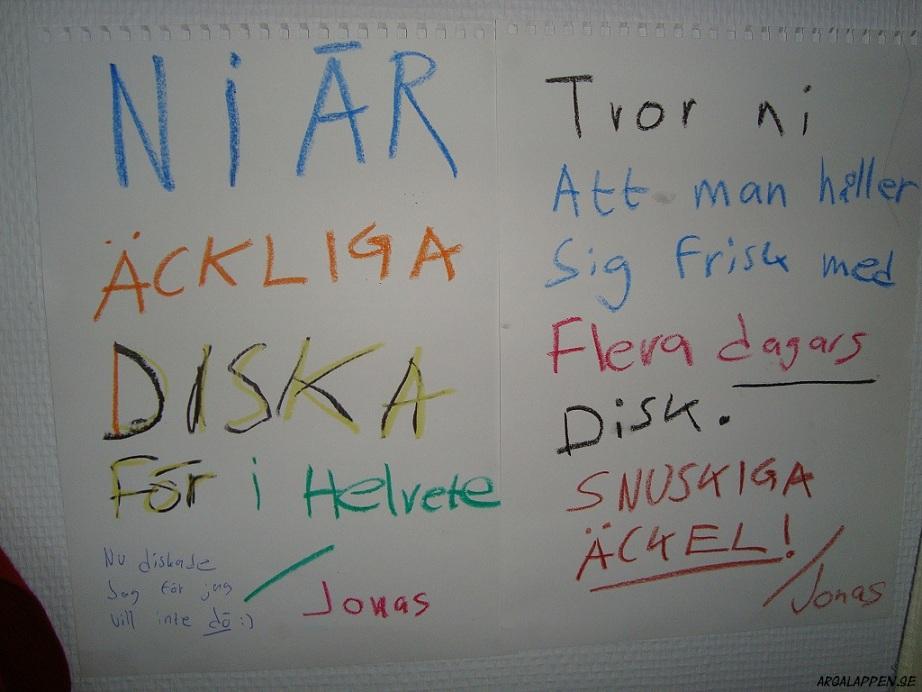 NI ÄR
ÄCKLIGA
DISKA
För i Helvete
/Jonas
Nu diskade
Jag för jag
vill inte dö :)
Tror ni
Att man håller
Sig Frisk med
Flera dagars
Disk.
SNUSKIGA
ÄCKEL!
/Jonas
ARGALAPPEN.SE